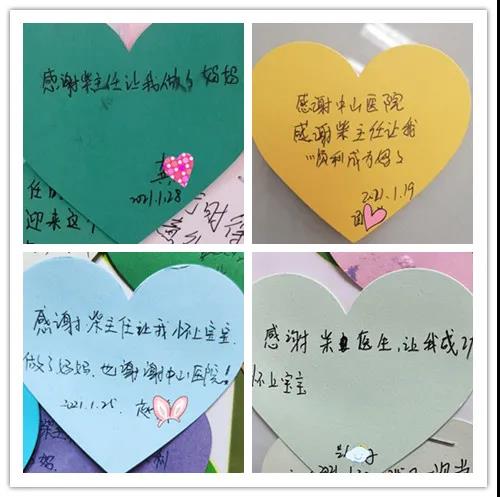 感谢柴主任让我做了妈妈
2021.1.28
迎来这个
感谢中山医院
感谢柴主任让我
顺利成为妈了
2021.1.19
感谢柴主任让我怀上宝宝,
做了妈妈,也谢谢中山医院!
2021.1.25.
感谢 柴 医生,让我成功
怀上宝宝